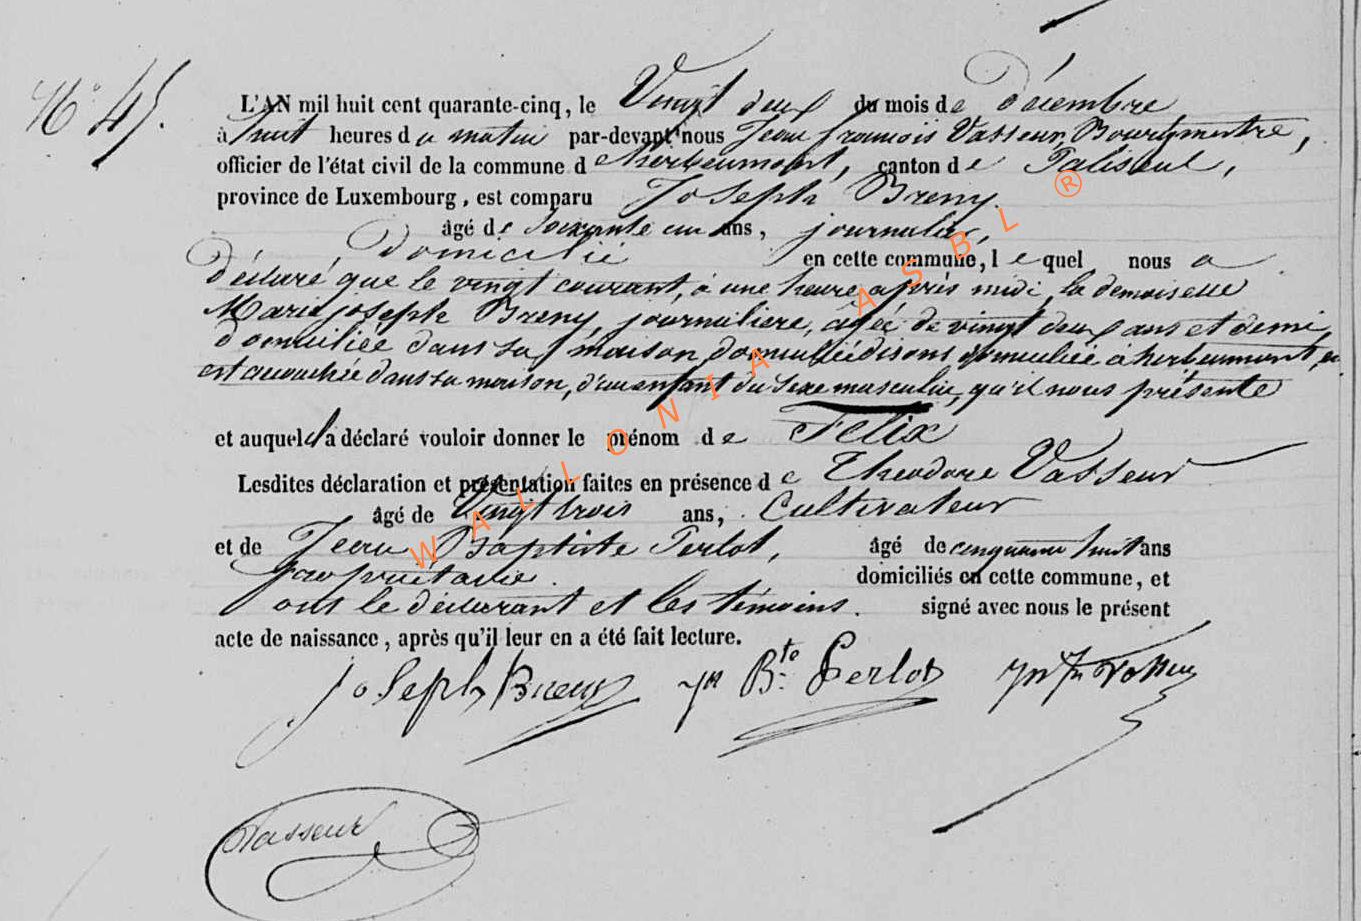 N° 45.
L'AN mil huit cent quarante-cinq, le Vingt deux du mois de Décembre
à huit heures du matin par-devant nous Jean françois Vasseur, Bourgmestre,
officier de l'état civil de la commune d'herbeumont, canton de Paliseul,
province de Luxembourg, est comparu Joseph Breny
âgé de soixante un ans, journalier,
Domicilié en cette commune, lequel nous a
déclaré que le vingt courant, à une heure après midi, la demoiselle
Marie joseph Breny, journaliere, âgée de vingt deux ans et demi,
domiciliée dans sa maison domiciliée disons domiciliée à herbeumont,
est accouchée dans sa maison, d'un enfant du sexe masculin, qu'il nous présente
et auquel il a déclaré vouloir donner le prénom de Félix
Lesdites déclaration et présentation faites en présence de Theodore Vasseur
âgé de Vingt trois ans, Cultivateur
et de Jean Baptiste Perlot, âgé de cinquante huit ans
propriétaire. domiciliés en cette commune, et
ont le déclarant et les témoins. signé avec nous le présent
acte de naissance, après qu'il leur en a été fait lecture.
Joseph Breny Jn Bte Perlot Jn Fs Vasseur
Vasseur
WALLONIA ASBL ®